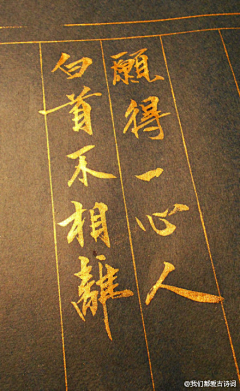 願得一心人
白首不相離
@我们都爱古诗词